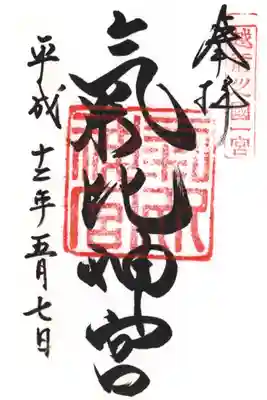 越前之國一宮
奉拝
氣比神宮
平成十二年五月七日